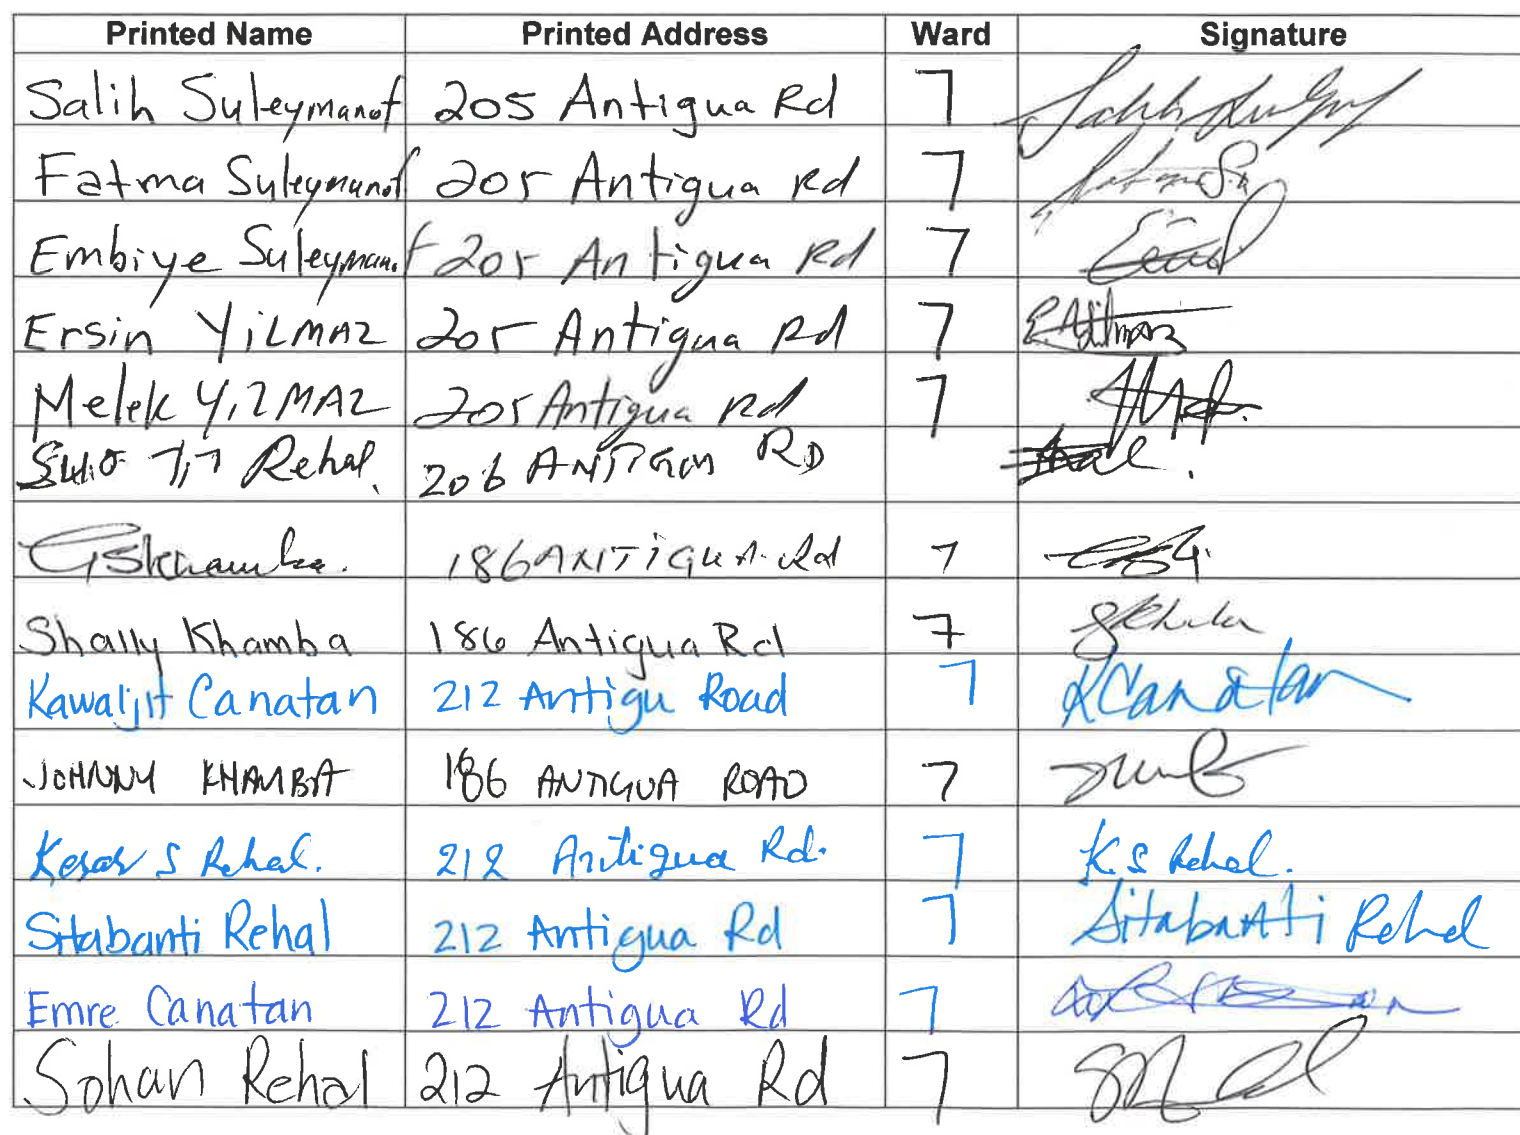 Printed Name Printed Address Ward Signature
Salih Suleymanof 205 Antigua Rd 7
Fatma Suleymanof 205 Antigua Rd 7
Embiye Suleymanof 205 Antigua Rd 7
Ersin YiLMAZ 205 Antigua Rd 7 E. Yilmaz
Melek YilMAZ 205 Antigua Rd 7
Rehal. 206 ANTIGUA RD
186 ANTIGUA Rd 7
Shally Khamba 186 Antigua Rd 7
Kawaljit Canatan 212 Antigu Road 7 K Canatan
JOHNNY KHAMBA 186 ANTIGUA ROAD 7
Kesar S Rehal. 212 Antigua Rd. 7 K. S Rehal.
Sitabanti Rehal 212 Antigua Rd 7 Sitabanti Rehal
Emre Canatan 212 Antigua Rd 7
Sohan Rehal 212 Antigua Rd 7